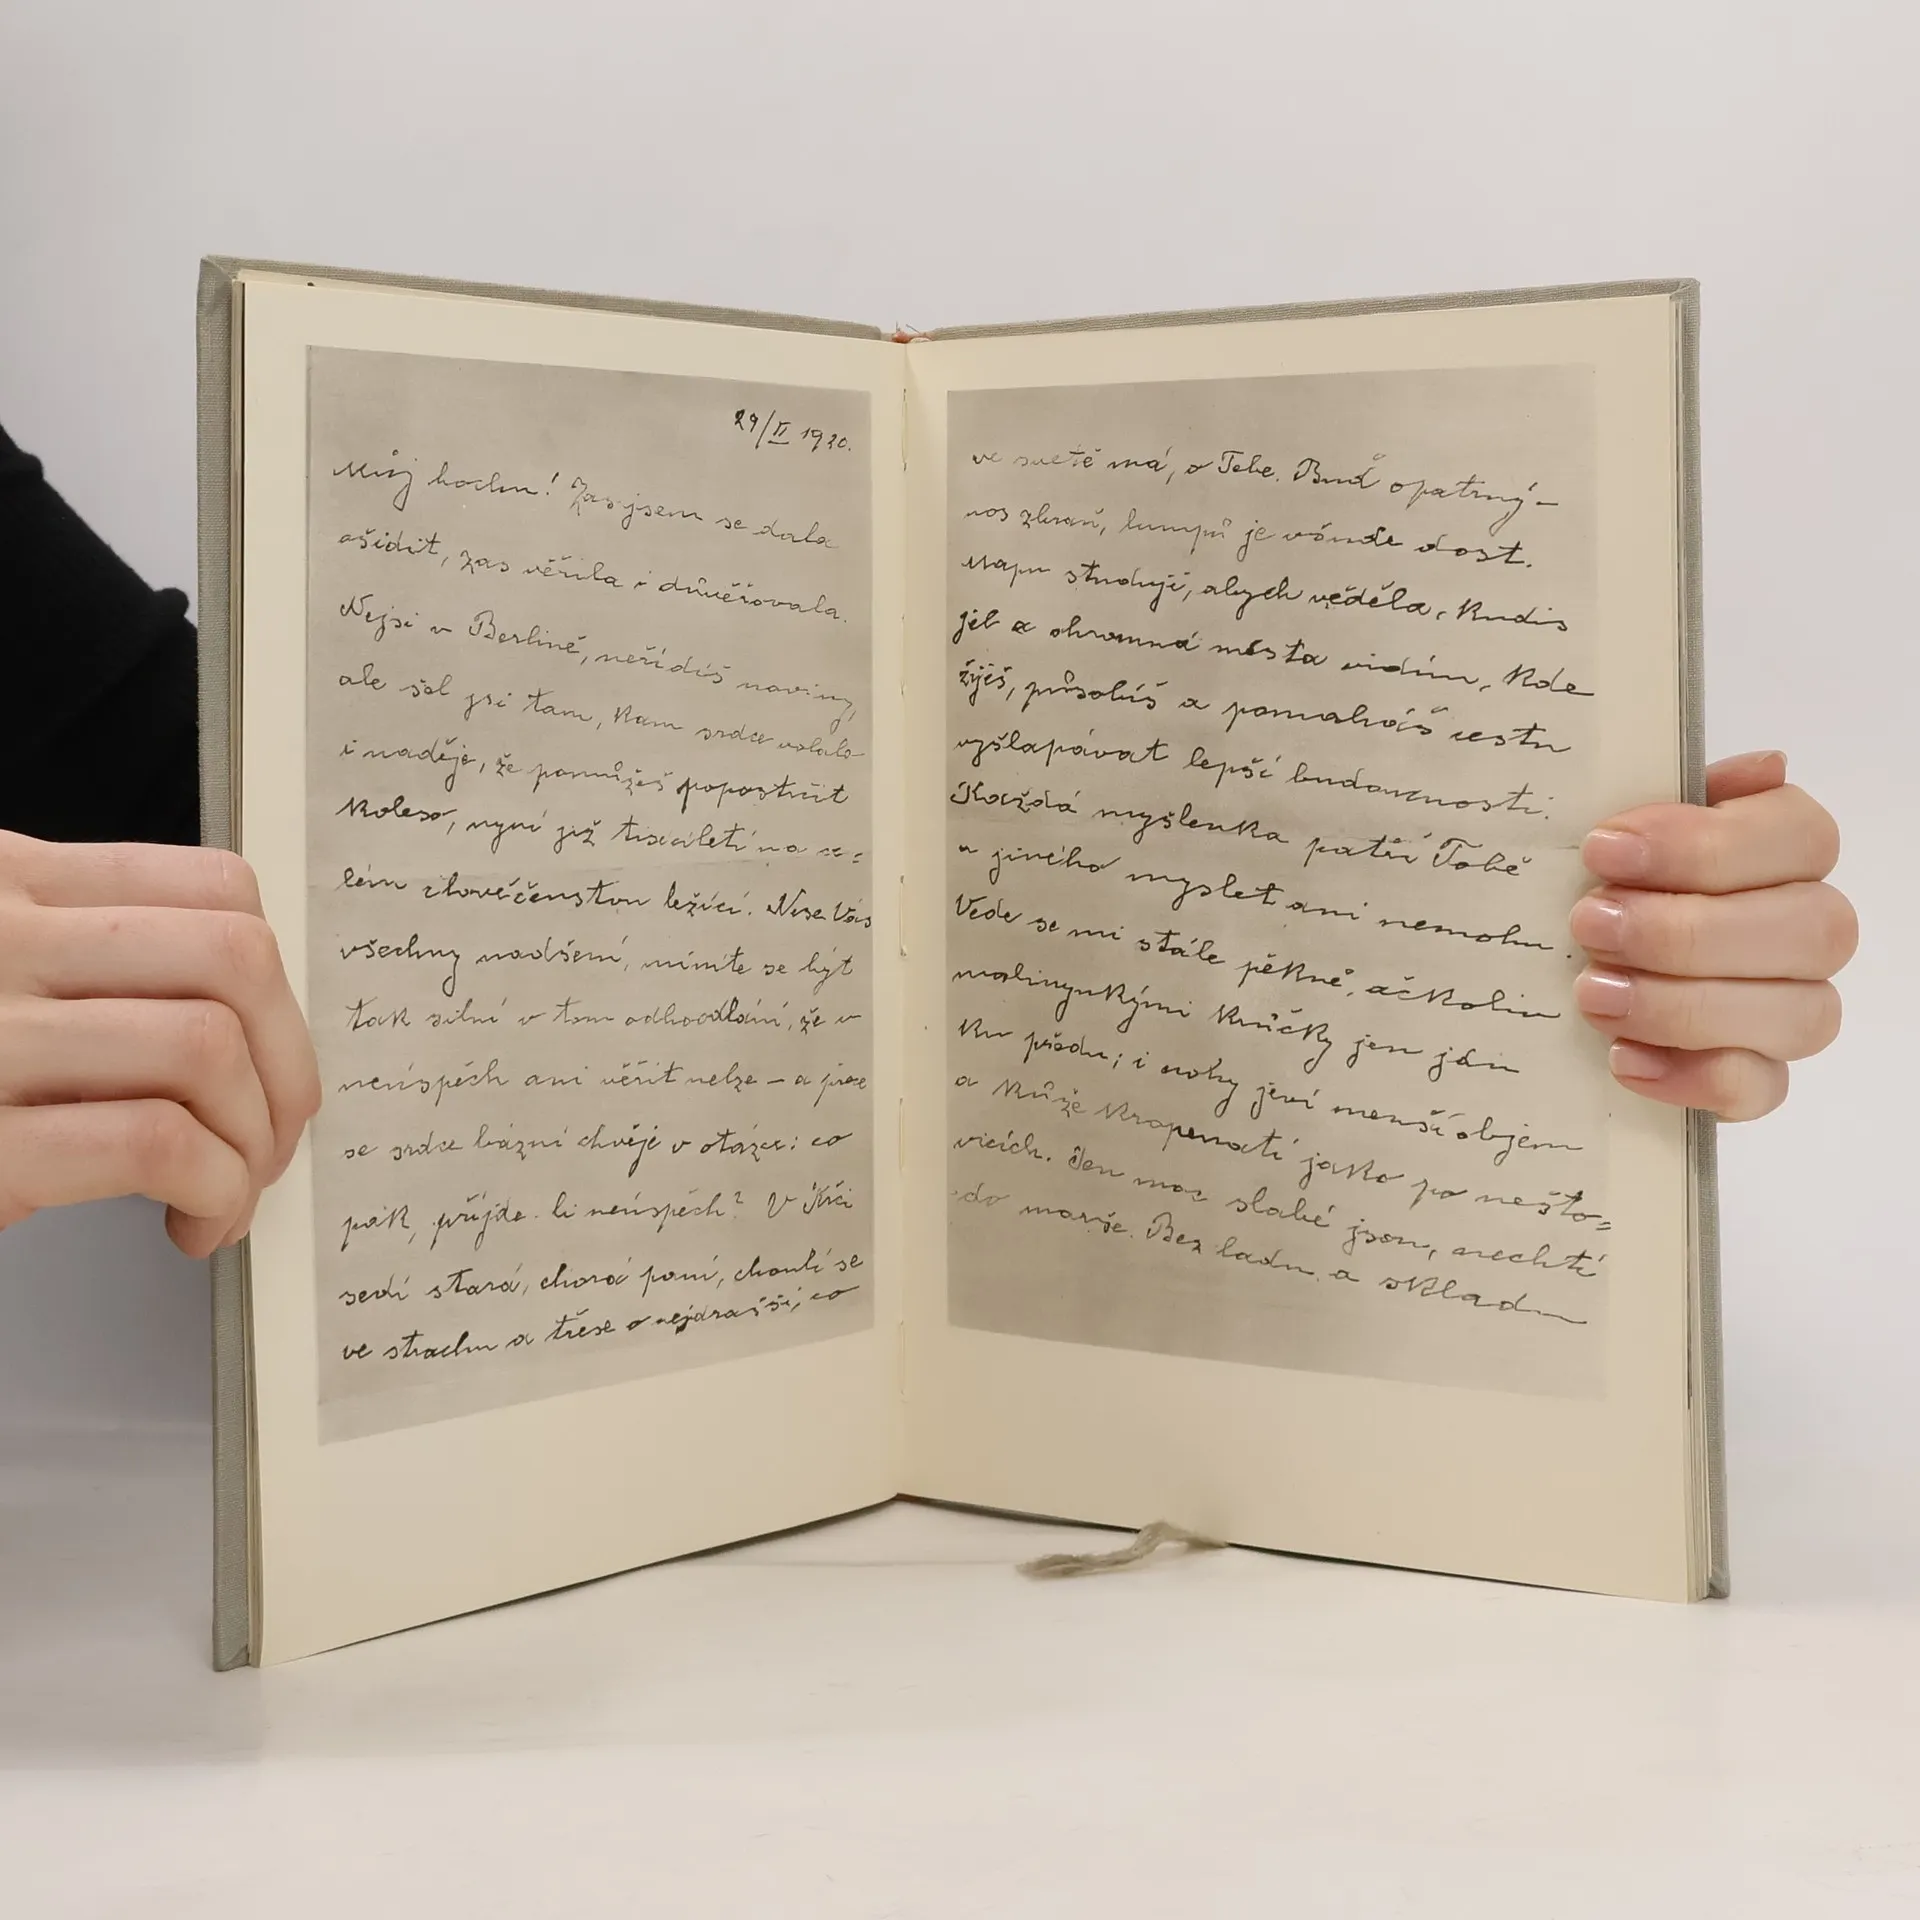 29/II 1920.
Můj hochu! Zas jsem se dala
ošidit, zas věřila i důvěřovala.
Nejsi v Berlíně, neřídíš noviny,
ale šel jsi tam, kam srdce volalo
i naděje, že pomůžeš popostrčit
koleso, nyní již tisíciletí na ce=
lém člověčenstvu ležící. Nese Vás
všechny nadšení, míníte se být
tak silní v tom odhodlání, že v
neúspěch ani věřit nelze – a přece
se srdce bázní chvěje v otázce: co
pak, přijde-li neúspěch? V Krči
sedí stará, chorá paní, choulí se
ve strachu a třese o nejdražší, co
ve světě má, o Tebe. Buď opatrný –
nos zbraň, lumpů je všude dost.
Mapu studuji, abych věděla, kudis
jel a ohromná města vidím, kde
žiješ, působíš a pomaháš cestu
vyšlapávat lepší budoucnosti.
Každá myšlenka patří Tobě
a jiného myslet ani nemohu.
Vede se mi stále pěkně, ačkoliv
malinynkými krůčky jen jdu
ku předu; i nohy jeví menší objem
a kůže kropenatí jako po nešto=
vicích. Jen moc slabé jsou, nechtí
do marše. Bez ladu a skladu